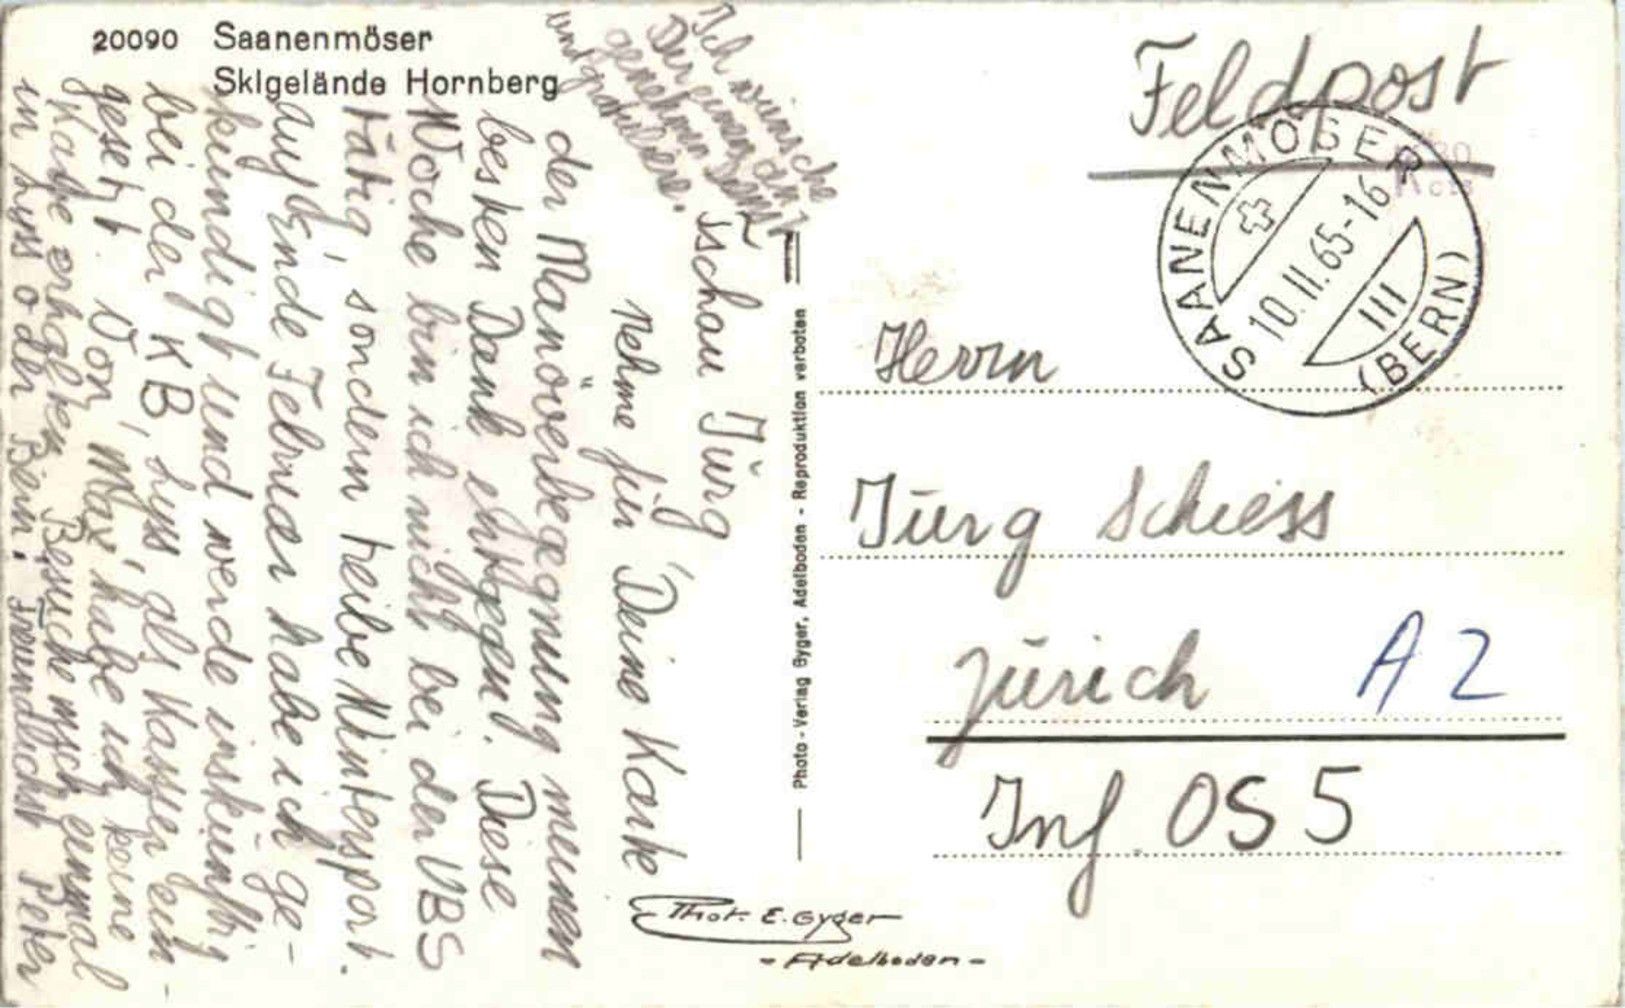 20090 Saanenmöser
Skigelände Hornberg
Tschau Jürg
Nehme für Deine Karte
der Manöverbegegnung meinen
besten Dank entgegen! Diese
Woche bin ich nicht bei der VBS
tätig, sondern treibe Wintersport.
Auf Ende Februar habe ich ge-
kündigt und werde inskünftig
bei der KB, Lyss als Kassier ein-
gesetzt. Von 'Max' habe ich keine
Karte erhalten. Besuche mich einmal
in Lyss oder Bern! Freundlichst Peter
Ich wünsche
Dir einen an-
genehmen Dienst
und gratuliere.
Photo-Verlag Gyger, Adelboden - Reproduktion verboten
Phot. E. Gyger
- Adelboden -
Feldpost
SAANENMÖSER
10.II.65-16
III
(BERN)
Herrn
Jürg Schiess
Zürich A 2
Inf. OS 5